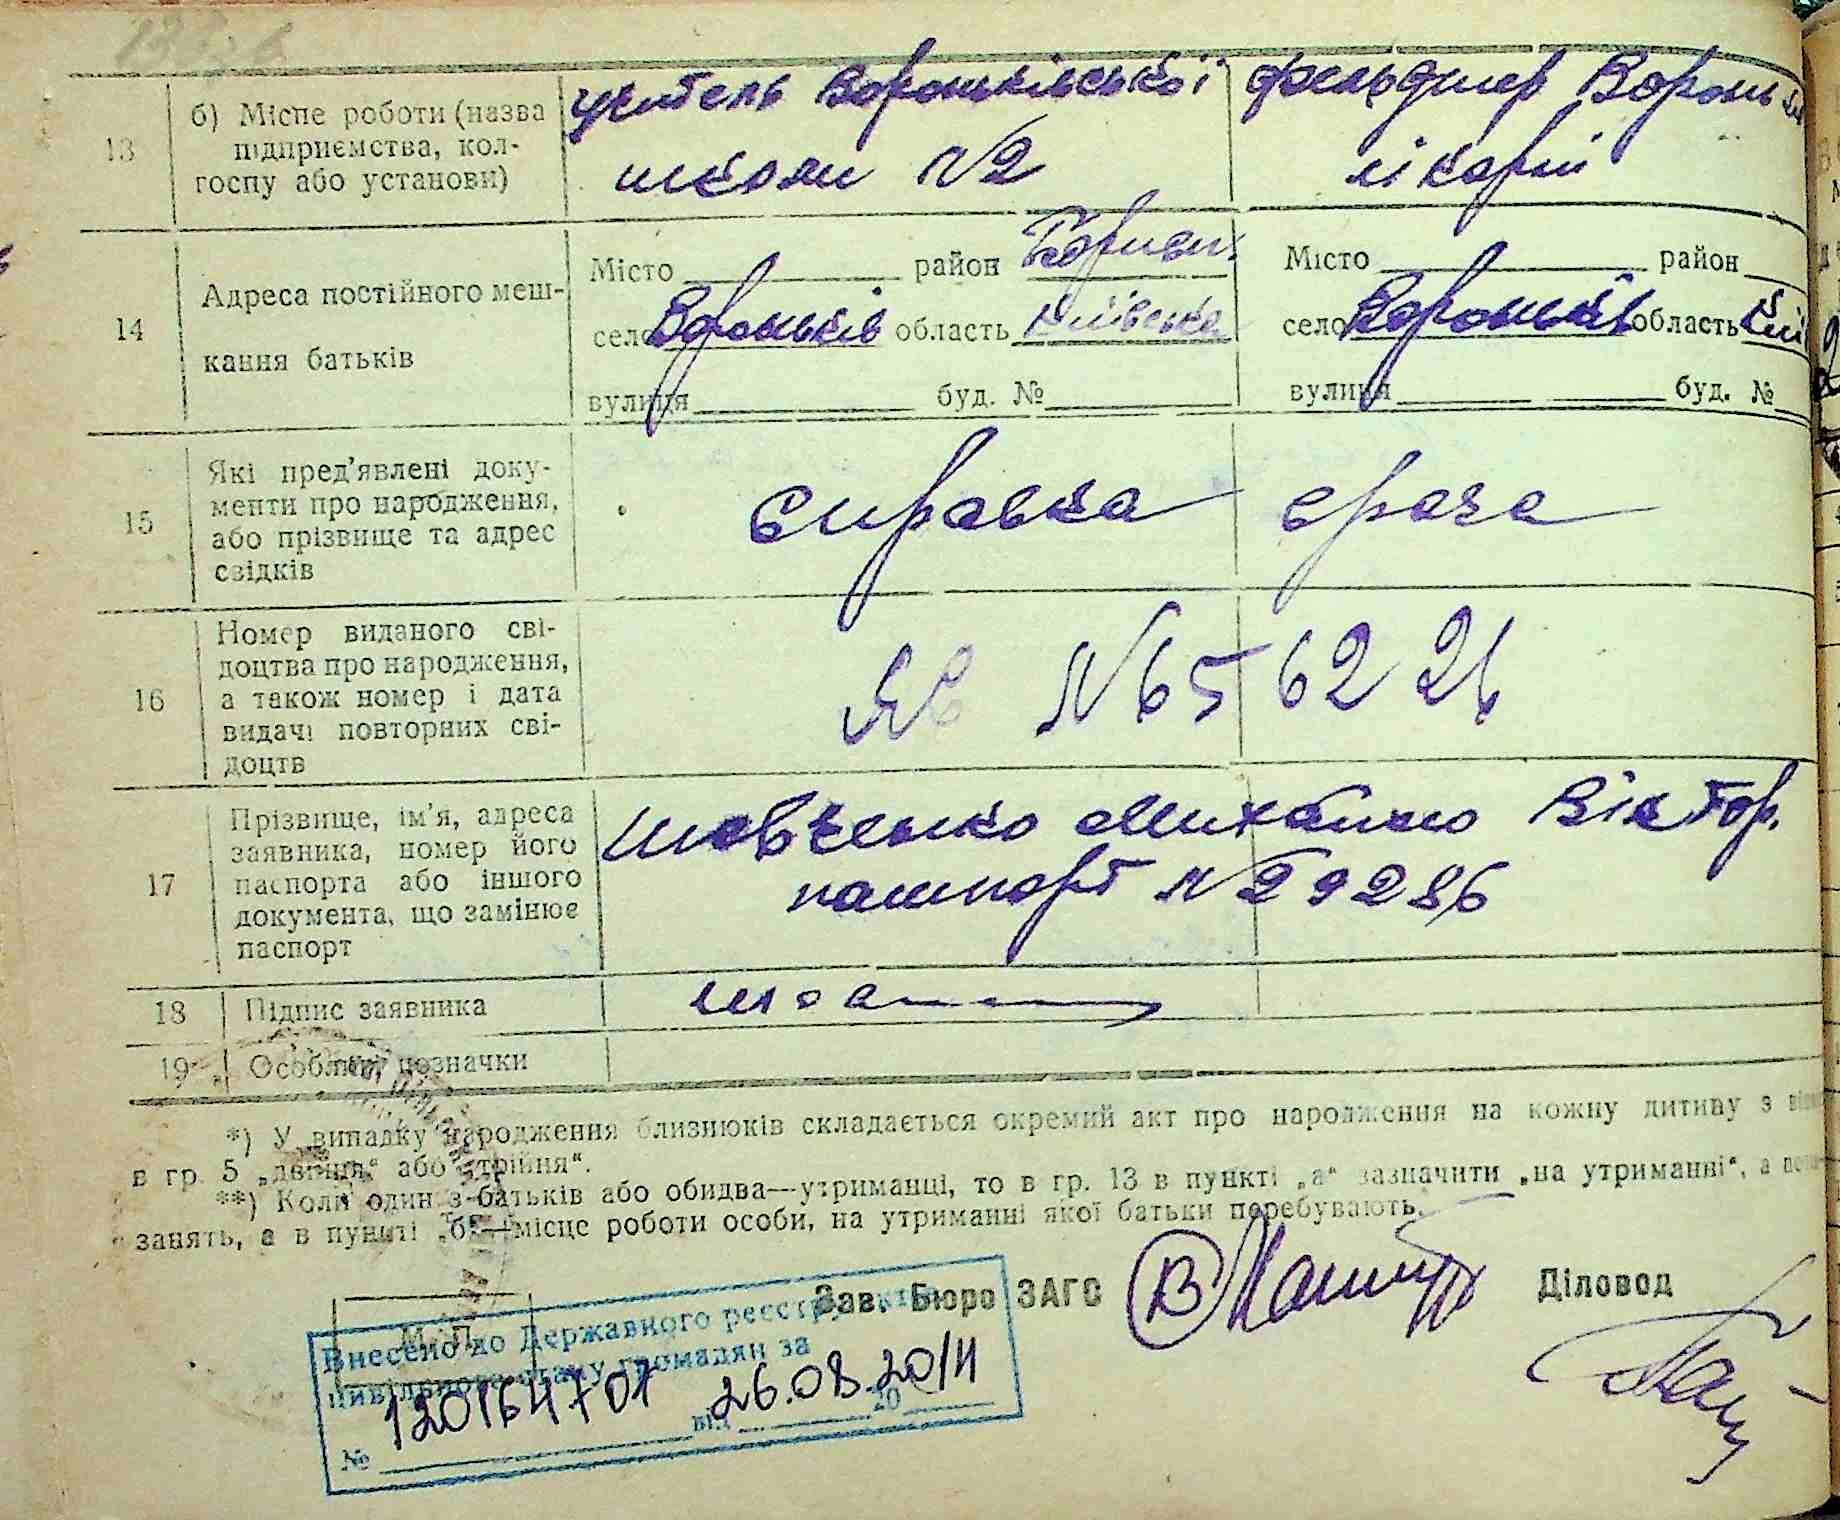 13
б) Місце роботи (назва
підприємства, кол-
госпу або установи)
учитель Вороньківської
школи №2
фельдшер Вороньк
лікарні
14
Адреса постійного меш-
кання батьків
Місто район Борисп.
село Вороньків область Київська
вулиця буд. №
Місто район
село Вороньків область Киї
вулиця буд. №
15
Які пред'явлені доку-
менти про народження,
або прізвище та адрес
свідків
справка врача
16
Номер виданого сві-
доцтва про народження,
а також номер і дата
видачі повторних сві-
доцтв
ЯЄ №656226
17
Прізвище, ім'я, адреса
заявника, номер його
паспорта або іншого
документа, що замінює
паспорт
Шевченко Михайло Віктор.
пашпорт №29286
18 Підпис заявника
19 Особливі позначки
*) У випадку народження близнюків складається окремий акт про народження на кожну дитину з
в гр. 5 „двійня“ або „трійня“.
**) Коли один з батьків або обидва—утриманці, то в гр. 13 в пункті „а“ зазначити „на утриманні“, а
занять, а в пункті „б“—місце роботи особи, на утриманні якої батьки перебувають.
Зав. Бюро ЗАГС
Діловод
М. П.
Внесено до Державного реєстру актів
цивільного стану громадян за
№ 120164701 від 26.08.2014
20